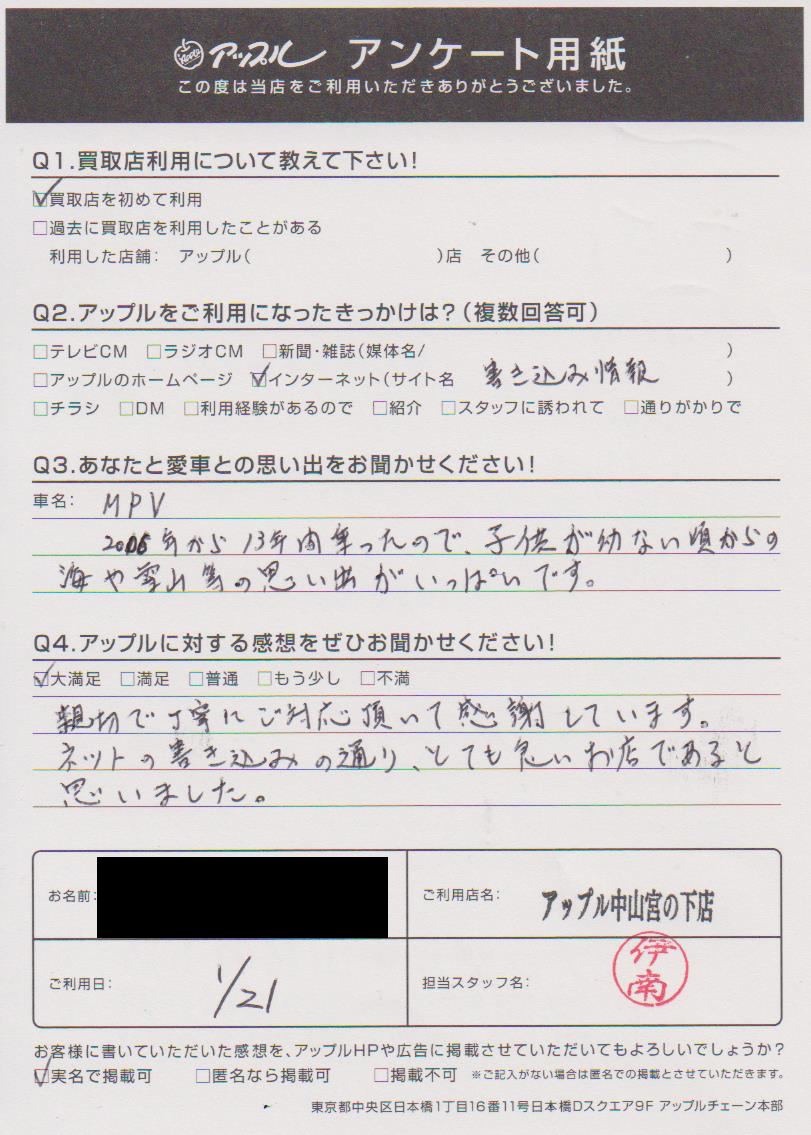 Apple アップル アンケート用紙
この度は当店をご利用いただきありがとうございました。
Q1.買取店利用について教えて下さい!
☑買取店を初めて利用
□過去に買取店を利用したことがある
利用した店舗: アップル( )店 その他( )
Q2.アップルをご利用になったきっかけは?(複数回答可)
□テレビCM □ラジオCM □新聞・雑誌(媒体名/ )
□アップルのホームページ ☑インターネット(サイト名 書き込み情報 )
□チラシ □DM □利用経験があるので □紹介 □スタッフに誘われて □通りがかりで
Q3.あなたと愛車との思い出をお聞かせください!
車名: MPV
2006年から13年間乗ったので、子供が幼ない頃からの
海や雪山等の思い出がいっぱいです。
Q4.アップルに対する感想をぜひお聞かせください!
☑大満足 □満足 □普通 □もう少し □不満
親切で丁寧にご対応頂いて感謝しています。
ネットの書き込みの通り、とても良いお店であると
思いました。
お名前:
ご利用店名: アップル中山宮の下店
ご利用日: 1/21
担当スタッフ名: 伊南
お客様に書いていただいた感想を、アップルHPや広告に掲載させていただいてもよろしいでしょうか?
☑実名で掲載可 □匿名なら掲載可 □掲載不可 ※ご記入がない場合は匿名での掲載とさせていただきます。
東京都中央区日本橋1丁目16番11号日本橋Dスクエア9F アップルチェーン本部